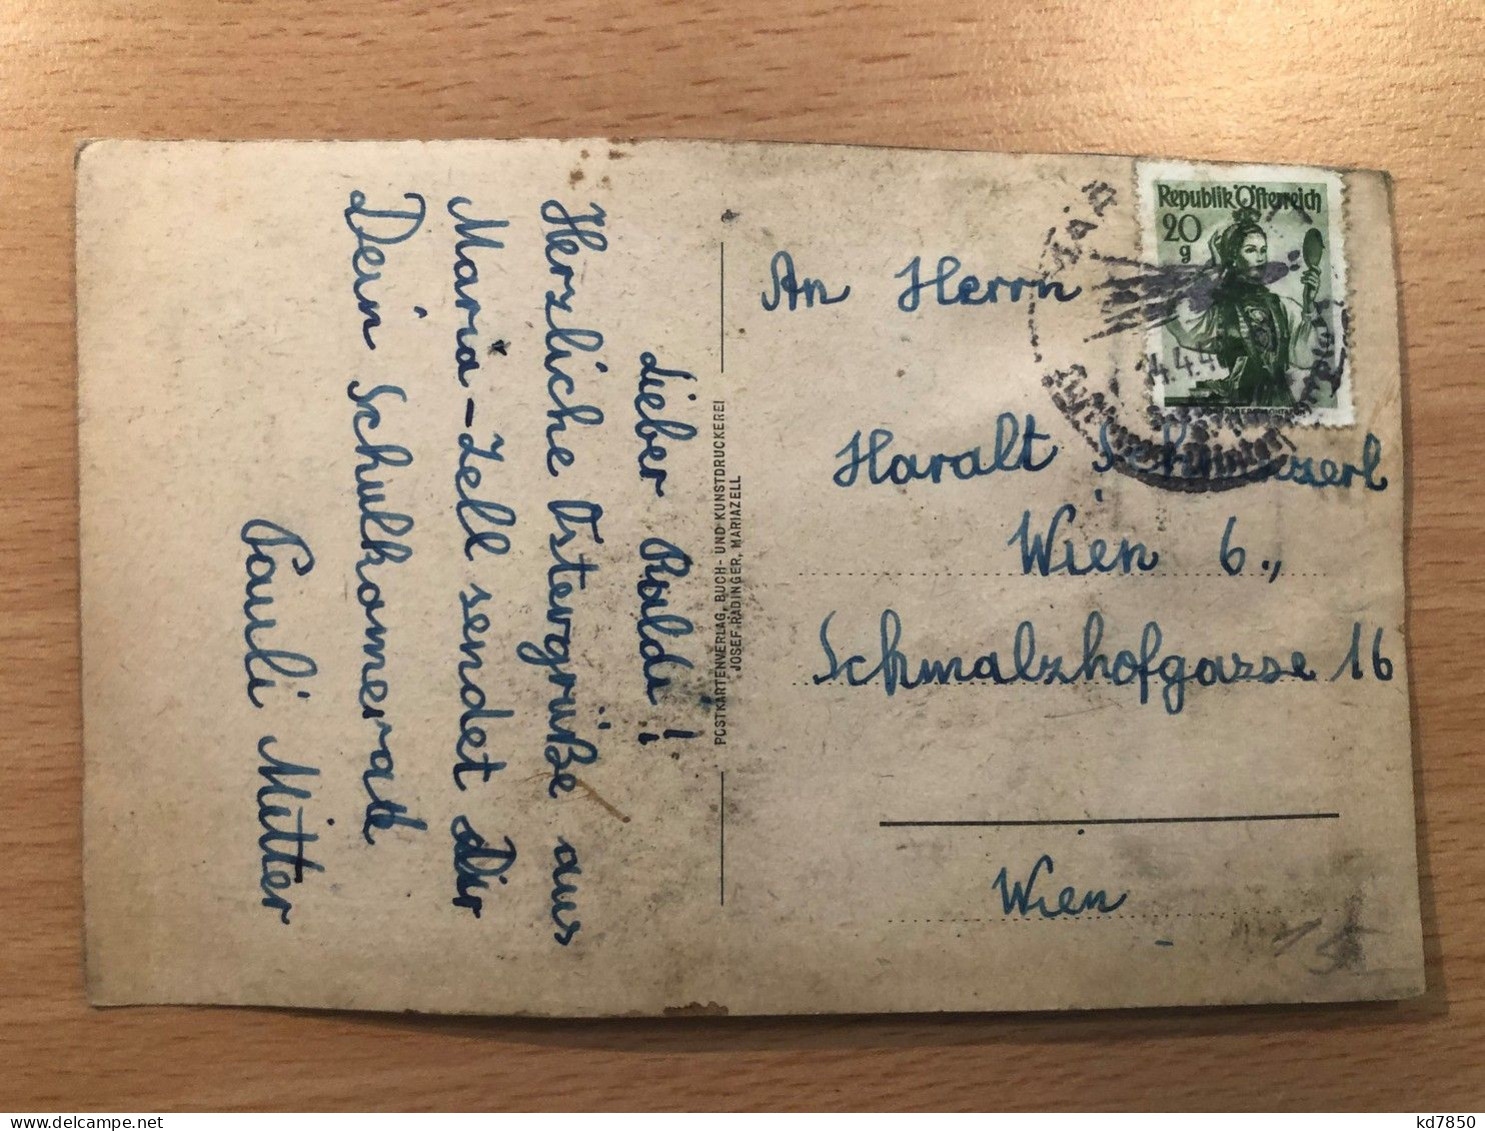 Lieber Raldi!
Herzliche Ostergrüße aus
Maria-Zell sendet Dir
Dein Schulkomerade
Pauli Mütter
POSTKARTENVERLAG, BUCH- UND KUNSTDRUCKEREI
JOSEF RADINGER, MARIAZELL
Republik Österreich
20
g
14.4.4
An Herrn
Haralt
Wien 6.,
Schmalzhofgasse 16
Wien
15
kd7850